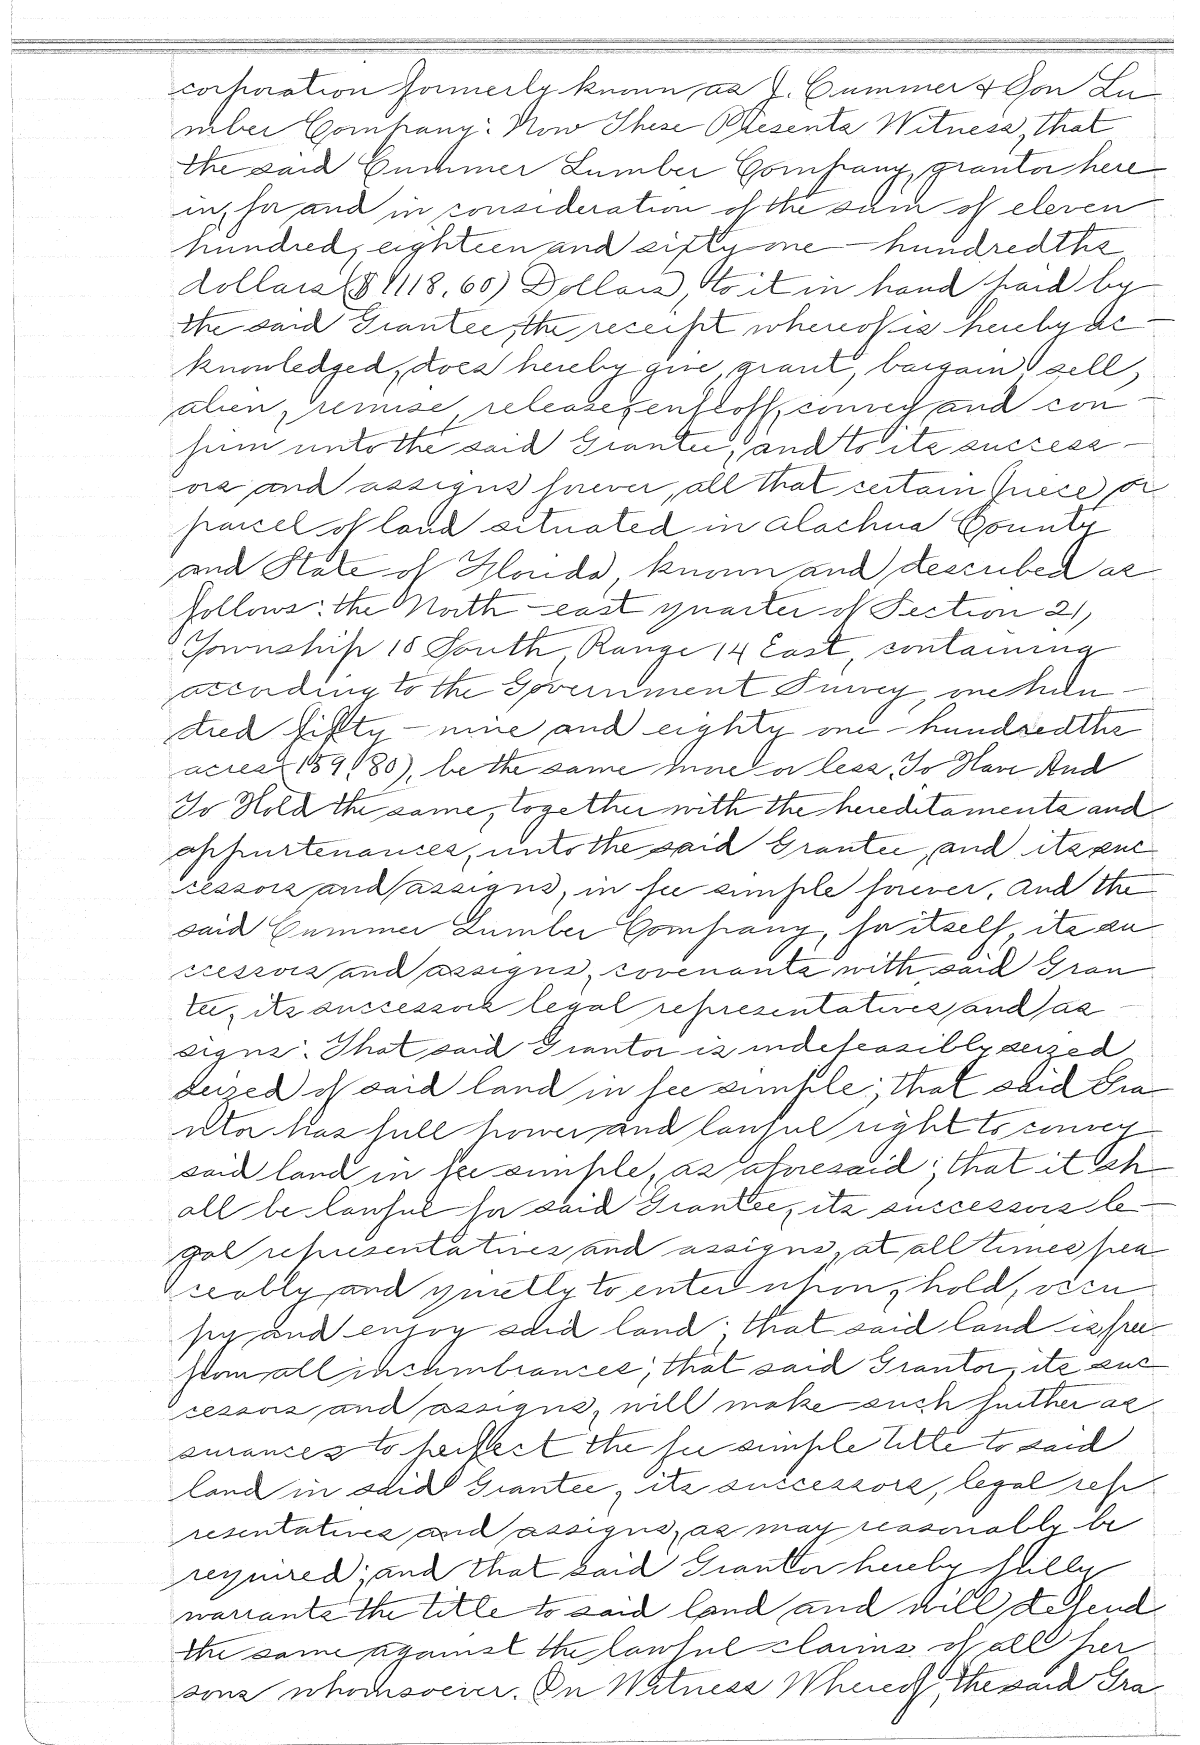 corporation formerly known as J. Cummer & Son Lu
mber Company: Now These Presents Witness, that
the said Cummer Lumber Company, grantor here
in, for and in consideration of the sum of eleven
hundred, eighteen and sixty one-hundredths
dollars ($1118.60) Dollars, to it in hand paid by
the said Grantee, the receipt whereof is hereby ac-
knowledged, does hereby give, grant, bargain, sell,
alien, remise, release, enfeoff, convey and con-
firm unto the said Grantee, and to its success-
ors and assigns forever, all that certain piece or
parcel of land situated in Alachua County
and State of Florida, known and described as
follows: the North-east quarter of Section 21,
Township 10 South, Range 14 East, containing
according to the Government Survey, one hun-
dred fifty-nine and eighty one-hundredths
acres (159.80), be the same more or less. To Have And
To Hold the same, together with the hereditaments and
appurtenances, unto the said Grantee, and its suc
cessors and assigns, in fee simple forever. And the
said Cummer Lumber Company, for itself, its su
ccessors and assigns, covenants with said Gran
tee, its successors legal representatives and as-
signs: That said Grantor is indefeasibly seized
seized of said land in fee simple; that said Gra
ntor has full power and lawful right to convey
said land in fee simple, as aforesaid; that it sh
all be lawful for said Grantee, its successors le-
gal representatives and assigns, at all times pea
ceably and quietly to enter upon, hold, occu
py and enjoy said land; that said land is free
from all incumbrances; that said Grantor, its suc
cessors and assigns, will make such further as
surances to perfect the fee simple title to said
land in said Grantee, its successors, legal rep
resentatives and assigns, as may reasonably be
required; and that said Grantor hereby fully
warrants the title to said land and will defend
the same against the lawful claims of all per
sons whomsoever. In Witness Whereof, the said Gra